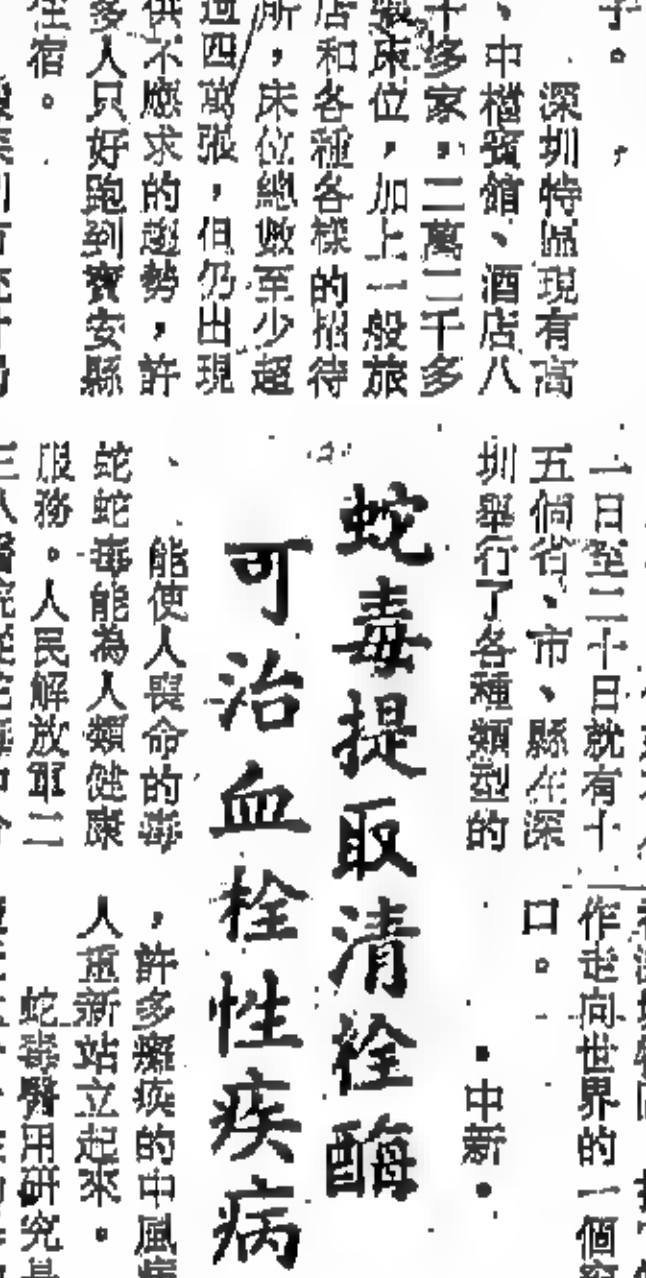 子。
深圳特區現有高
、中檔賓館、酒店八
十多家，二萬二千多
張床位，加上一般旅
店和各種各樣的招待
所，床位總數至少超
過四萬張，但仍出現
供不應求的趨勢，許
多人只好跑到寶安縣
住宿。
一日至二十日就有十
五個省、市、縣在深
圳舉行了各種類型的
作走向世界的一個
口。
·中新·
蛇毒提取清栓酶
可治血栓性疾病
能使人喪命的毒
蛇蛇毒能為人類健康
服務。人民解放軍二
，許多癱瘓的中風病
人重新站立起來。
蛇毒醫用研究